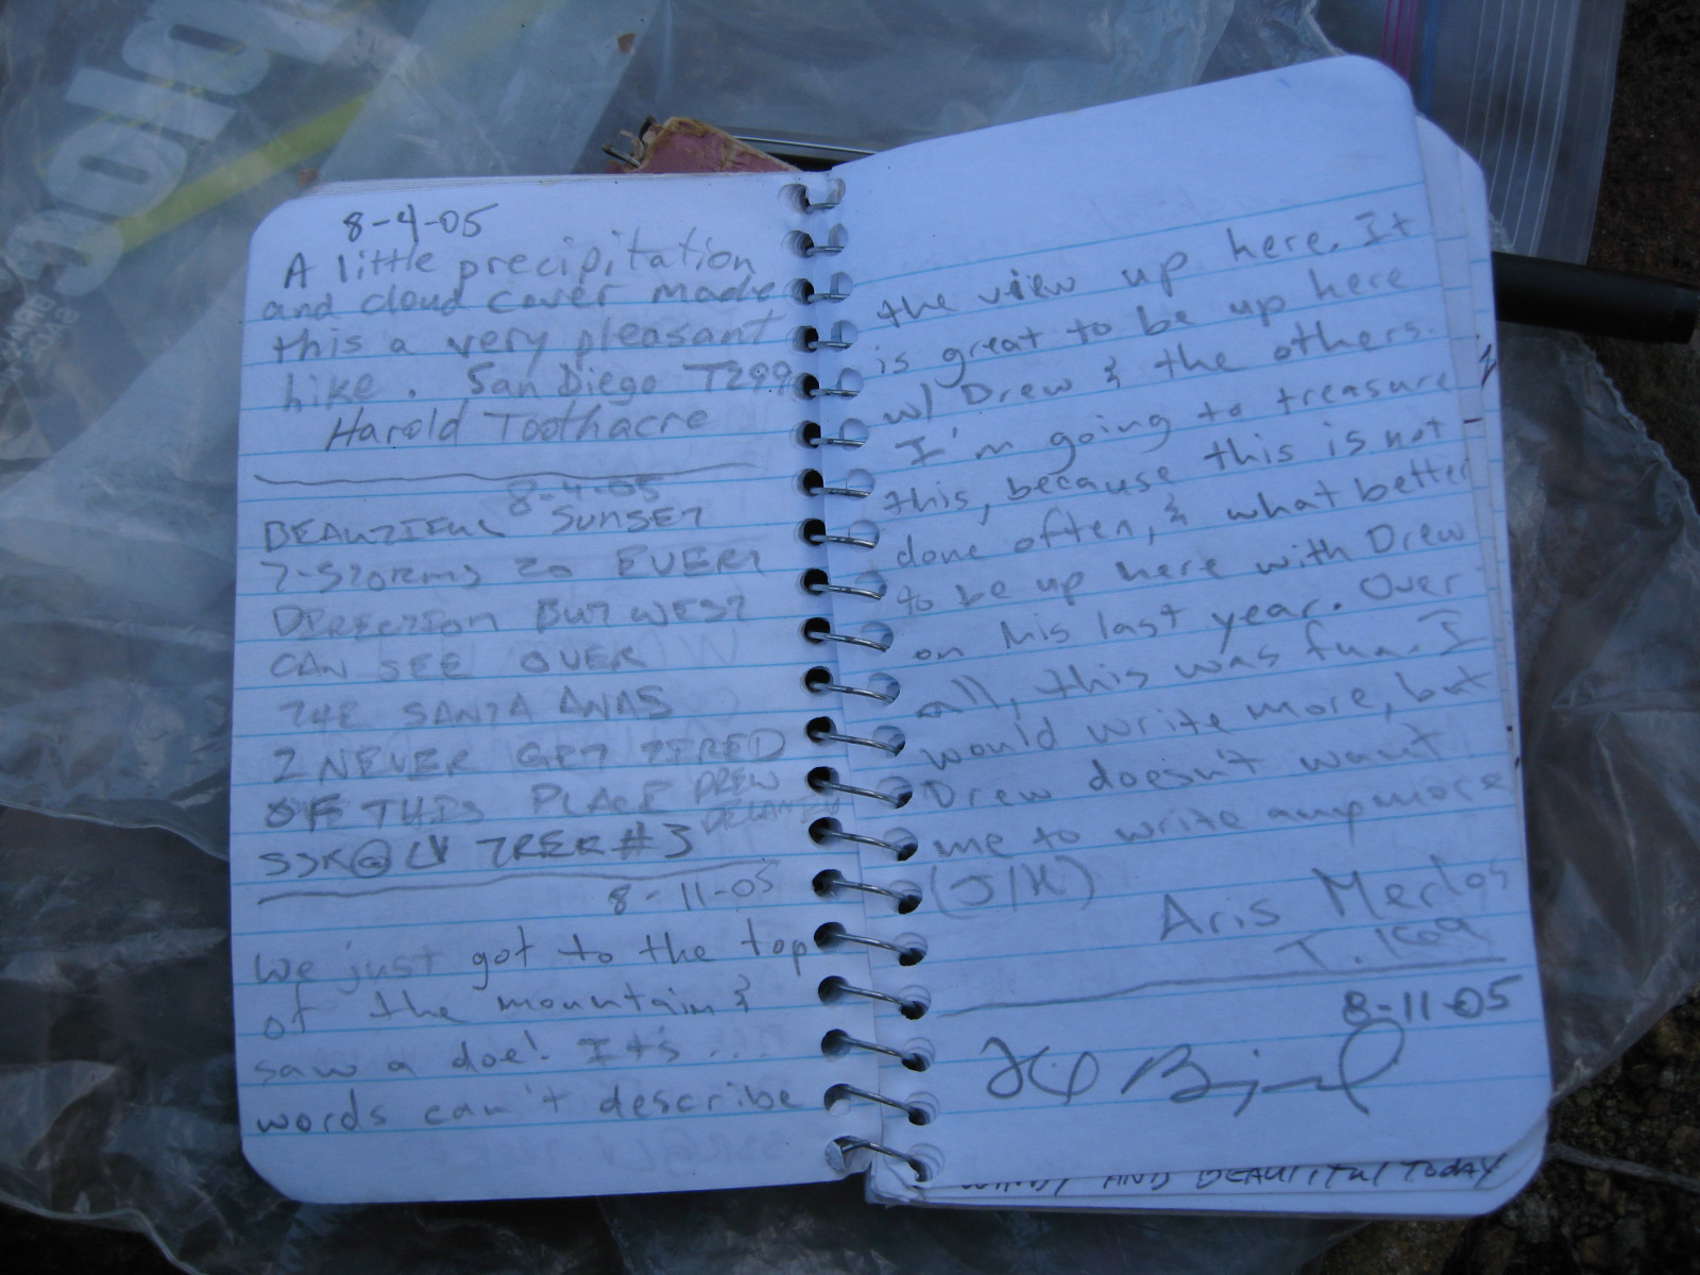 8-4-05
A little precipitation
and cloud cover made
this a very pleasant
hike. San Diego T299
Harold Toothacre
8-4-05
BEAUTIFUL SUNSET
T-STORMS TO EVERY
DIRECTION BUT WEST
CAN SEE OVER
THE SANTA ANAS
I NEVER GET TIRED
OF THIS PLACE DREW
TRER #3
8-11-05
We just got to the top
of the mountain &
saw a doe! It's ...
words can't describe
the view up here. It
is great to be up here
w/ Drew & the others.
I'm going to treasure
this, because this is not
done often, & what better
to be up here with Drew
on his last year. Over
all, this was fun. I
would write more, but
Drew doesn't want
me to write anymore
(J/K)
Aris Merlos
8-11-05
WINDY AND BEAUTIFUL TODAY